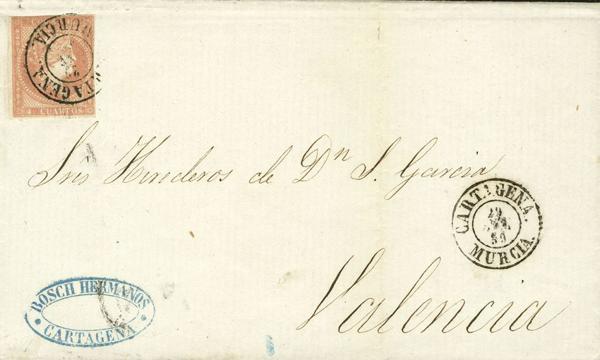 CARTAGENA. MURCIA.
4 CUARTOS
Sres Herederos de Dn S. Garcia
CARTAGENA.
MURCIA.
Valencia
BOSCH HERMANOS
CARTAGENA